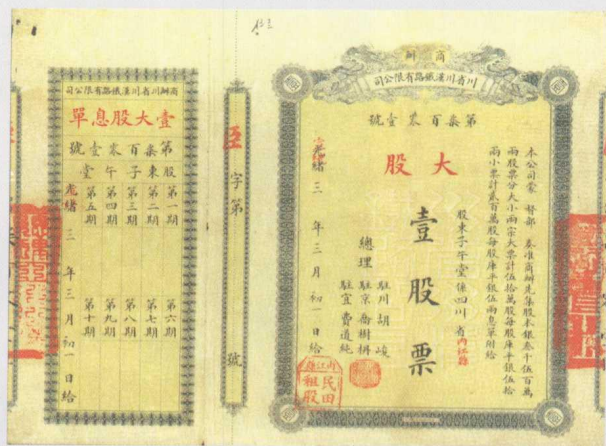 商辦
川省川漢鐵路有限公司
第柒百零壹號
大股
壹股票
本公司蒙 督部 奏准商辦先集股本銀叁千伍百萬
兩股票分大小兩宗大票計伍拾萬股每股庫平銀伍拾
兩小票計貳百萬股每股庫平銀伍兩息單附給
股東子午堂係四川省內江縣
總理
駐川胡峻
駐京喬樹枏
駐宜費道純
光緒三 年三月初一日給
內江縣
民田
租股
字第
號
商辦川省川漢鐵路有限公司
壹大股息單
第柒百零壹號
股東子午堂
第一期
第二期
第三期
第四期
第五期
第六期
第七期
第八期
第九期
第十期
光緒三 年三月初一日給